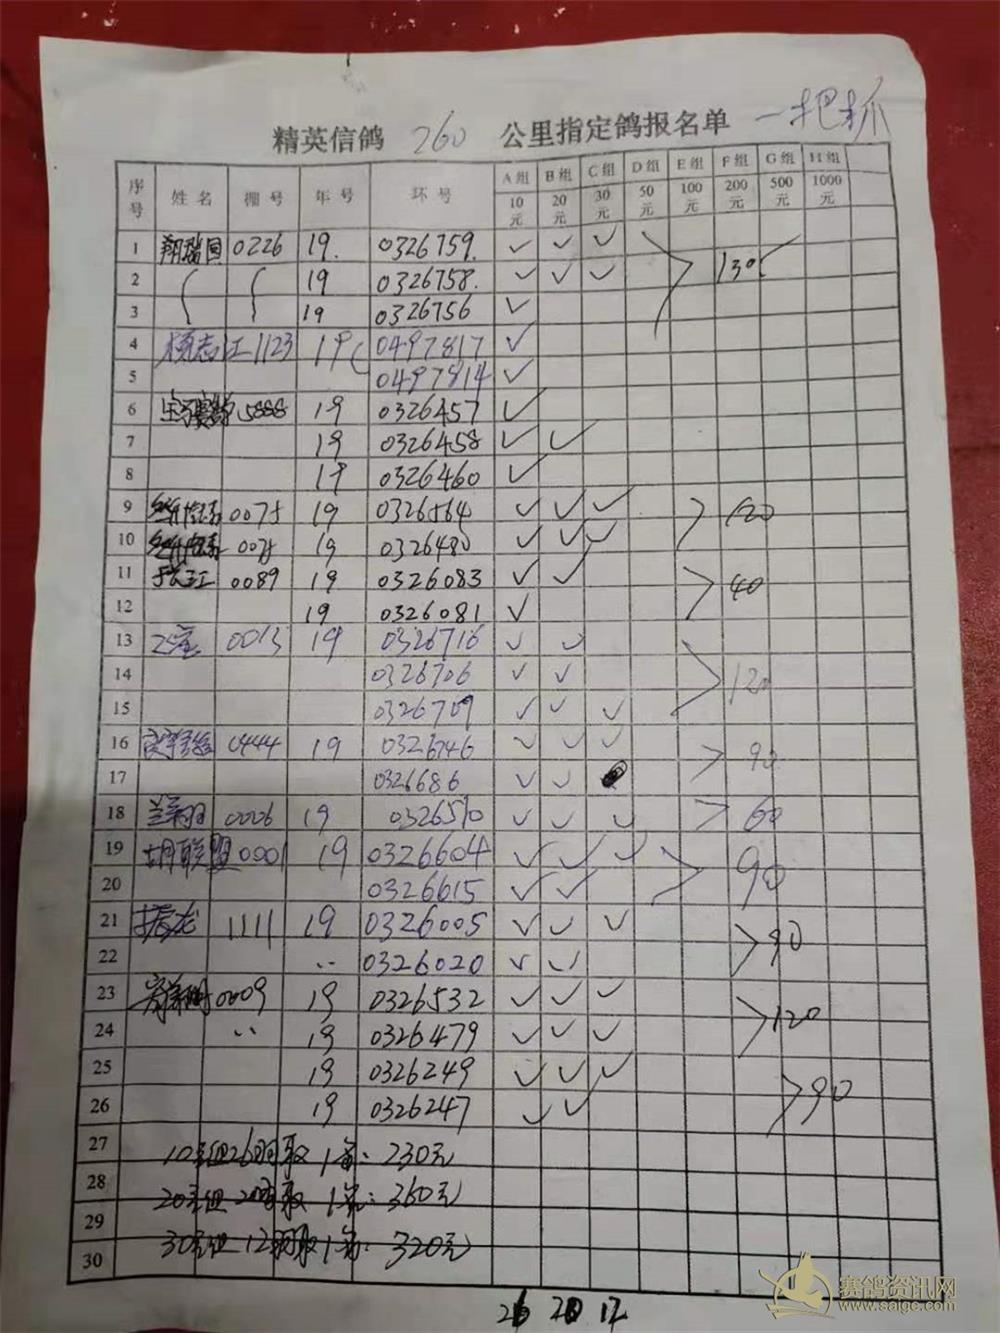 精英信鸽 260 公里指定鸽报名单 一把抓
序号 姓名 棚号 年号 环号 A组 B组 C组 D组 E组 F组 G组 H组
10元 20元 30元 50元 100元 200元 500元 1000元
1 翔瑞园 0226 19. 0326759. ✓ ✓ ✓
2 19 0326758. ✓ ✓ ✓ 130
3 19 0326756 ✓
4 志江 1123 19 0497817 ✓
5 0497814 ✓
6 5888 19 0326457 ✓
7 19 0326458 ✓ ✓
8 19 0326460 ✓
9 0075 19 0326564 ✓ ✓ ✓ 120
10 0075 19 0326480 ✓ ✓ ✓
11 0089 19 0326083 ✓ ✓ 40
12 19 0326081 ✓
13 0013 19 0326716 ✓ ✓
14 0326706 ✓ ✓ 120
15 0326709 ✓ ✓ ✓
16 0444 19 0326746 ✓ ✓ ✓ 90
17 0326686 ✓ ✓
18 兰翔羽 0006 19 0326510 ✓ ✓ ✓ 60
19 胡联盟 0001 19 0326604 ✓ ✓ ✓ 90
20 0326615 ✓ ✓
21 振龙 1111 19 0326005 ✓ ✓ ✓ 90
22 0326020 ✓ ✓
23 0009 19 0326532 ✓ ✓ ✓ 120
24 19 0326479 ✓ ✓ ✓
25 19 0326249 ✓ ✓ ✓ 90
26 19 0326247 ✓ ✓
27 10元组26羽取1名: 230元
28 20元组20羽取1名: 360元
29
30 30元组12羽取1名: 320元
26 20 12
赛鸽资讯网
www.saigc.com